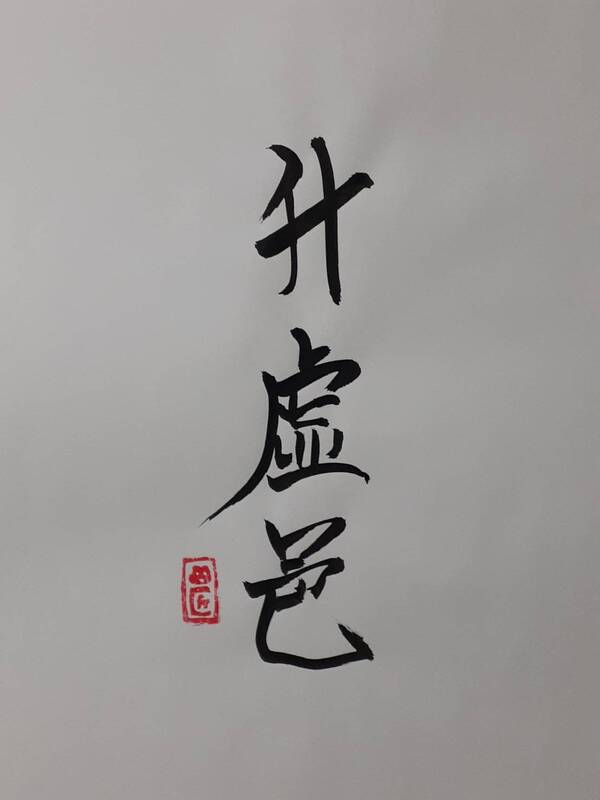 升虛邑